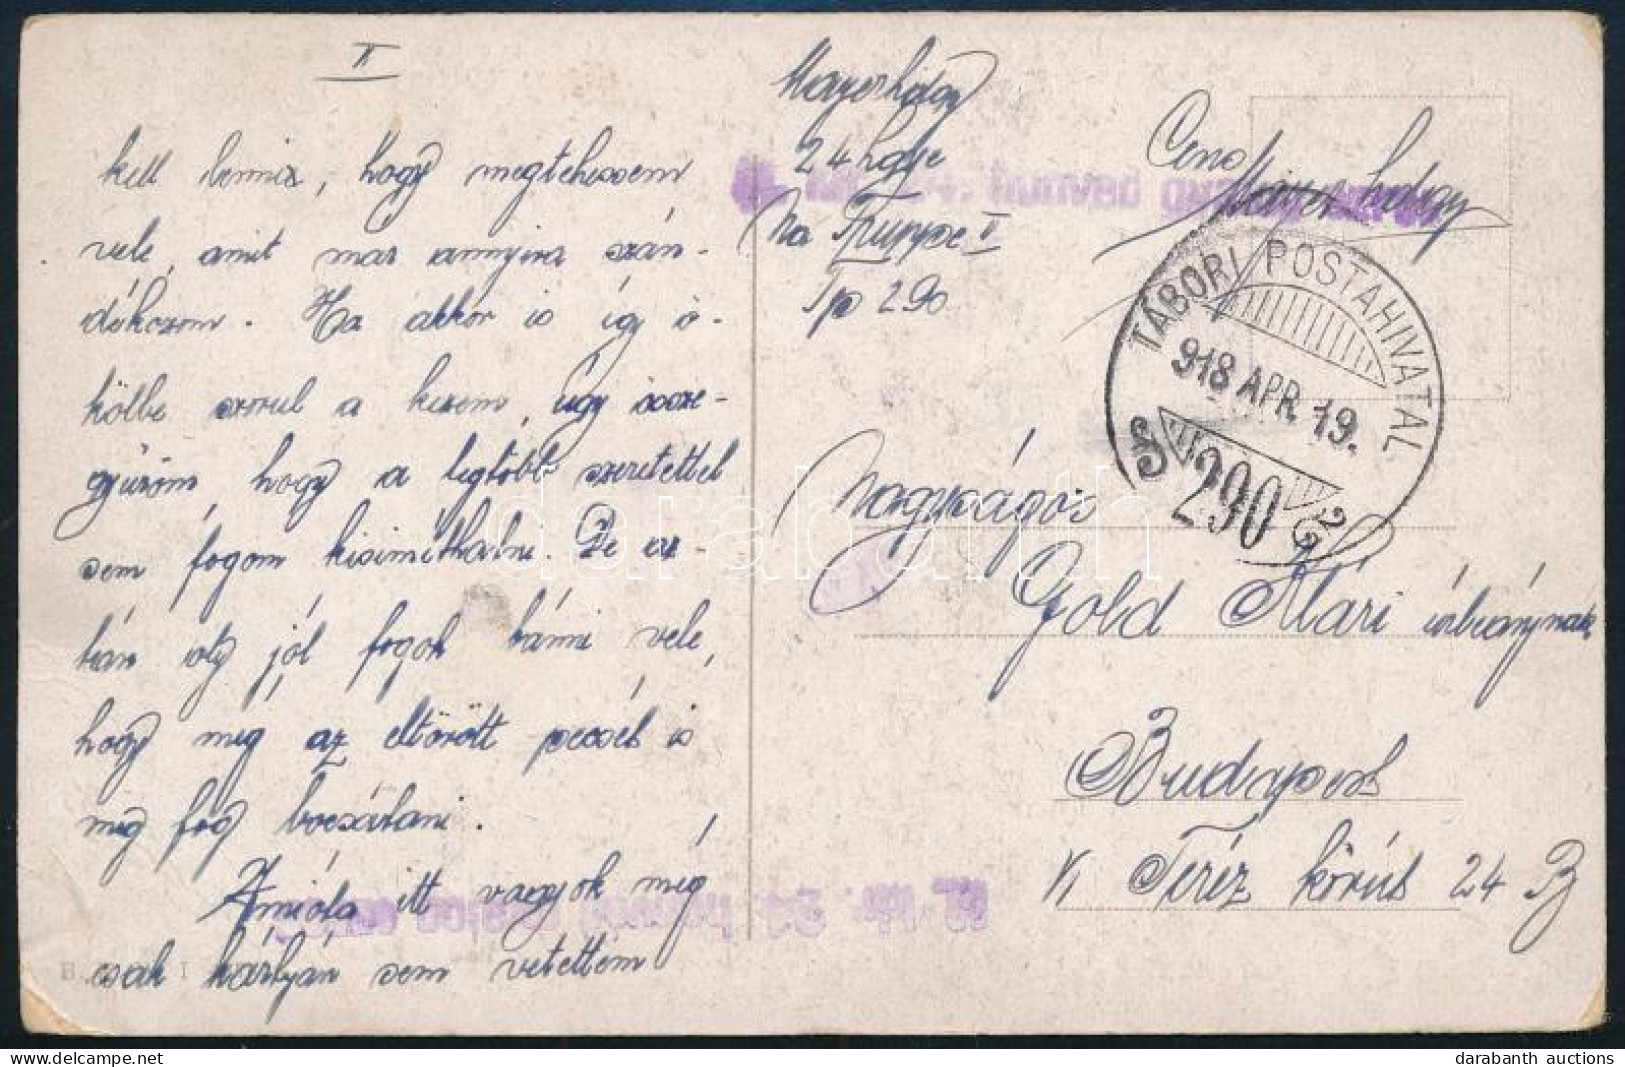 II
kell lennie, hogy megtehessem
vele, amit mar annyira szán-
dékozom. Ha akkor is így ö-
kölbe szorul a kezem, úgy issze-
gyűröm, hogy a legtöbb szeretettel
sem fogom kisimithatni. De az-
tán oly jól fogok bánni vele,
hogy még az eltörött pecsét is
meg fog bocsátani.
Amióta itt vagyok még
csak kártyán sem vetettem
Mayer hdgy
24 hgje
Na Truppe I
Tp 290
Cens
Mayer hdgy
TÁBORI POSTAHIVATAL
918 APR. 19.
290
Nagyságos
Gold Mári
Budapest
Teréz körút 24
darabanth
darabanth auctions